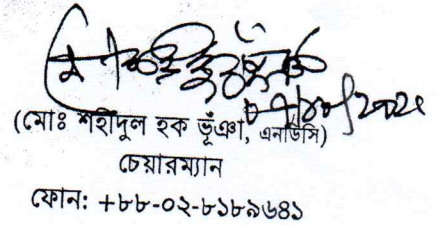 (মোঃ শহীদুল হক ভূঁঞা, এনডিসি)
চেয়ারম্যান
ফোন: +৮৮-০২-৮১৮৯৬৪১